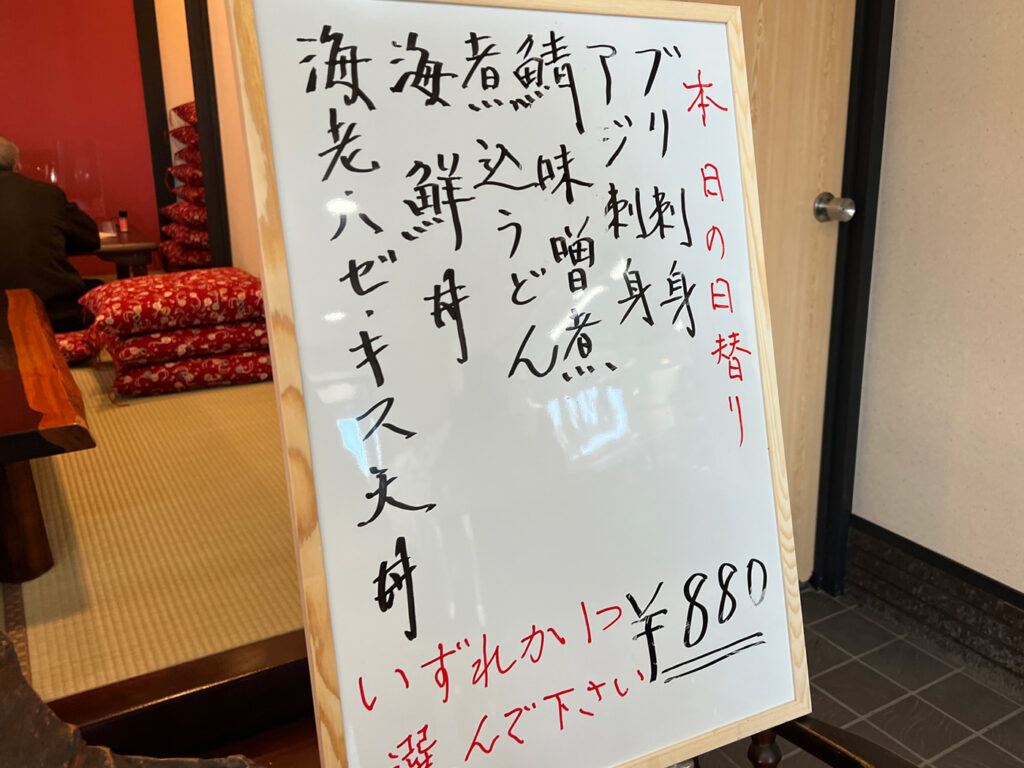 本日の日替り
ブリ刺身
アジ刺身
鯖味噌煮
煮込うどん
海鮮丼
海老・ハゼ・キス天丼
¥880
いずれか1つ
選んで下さい